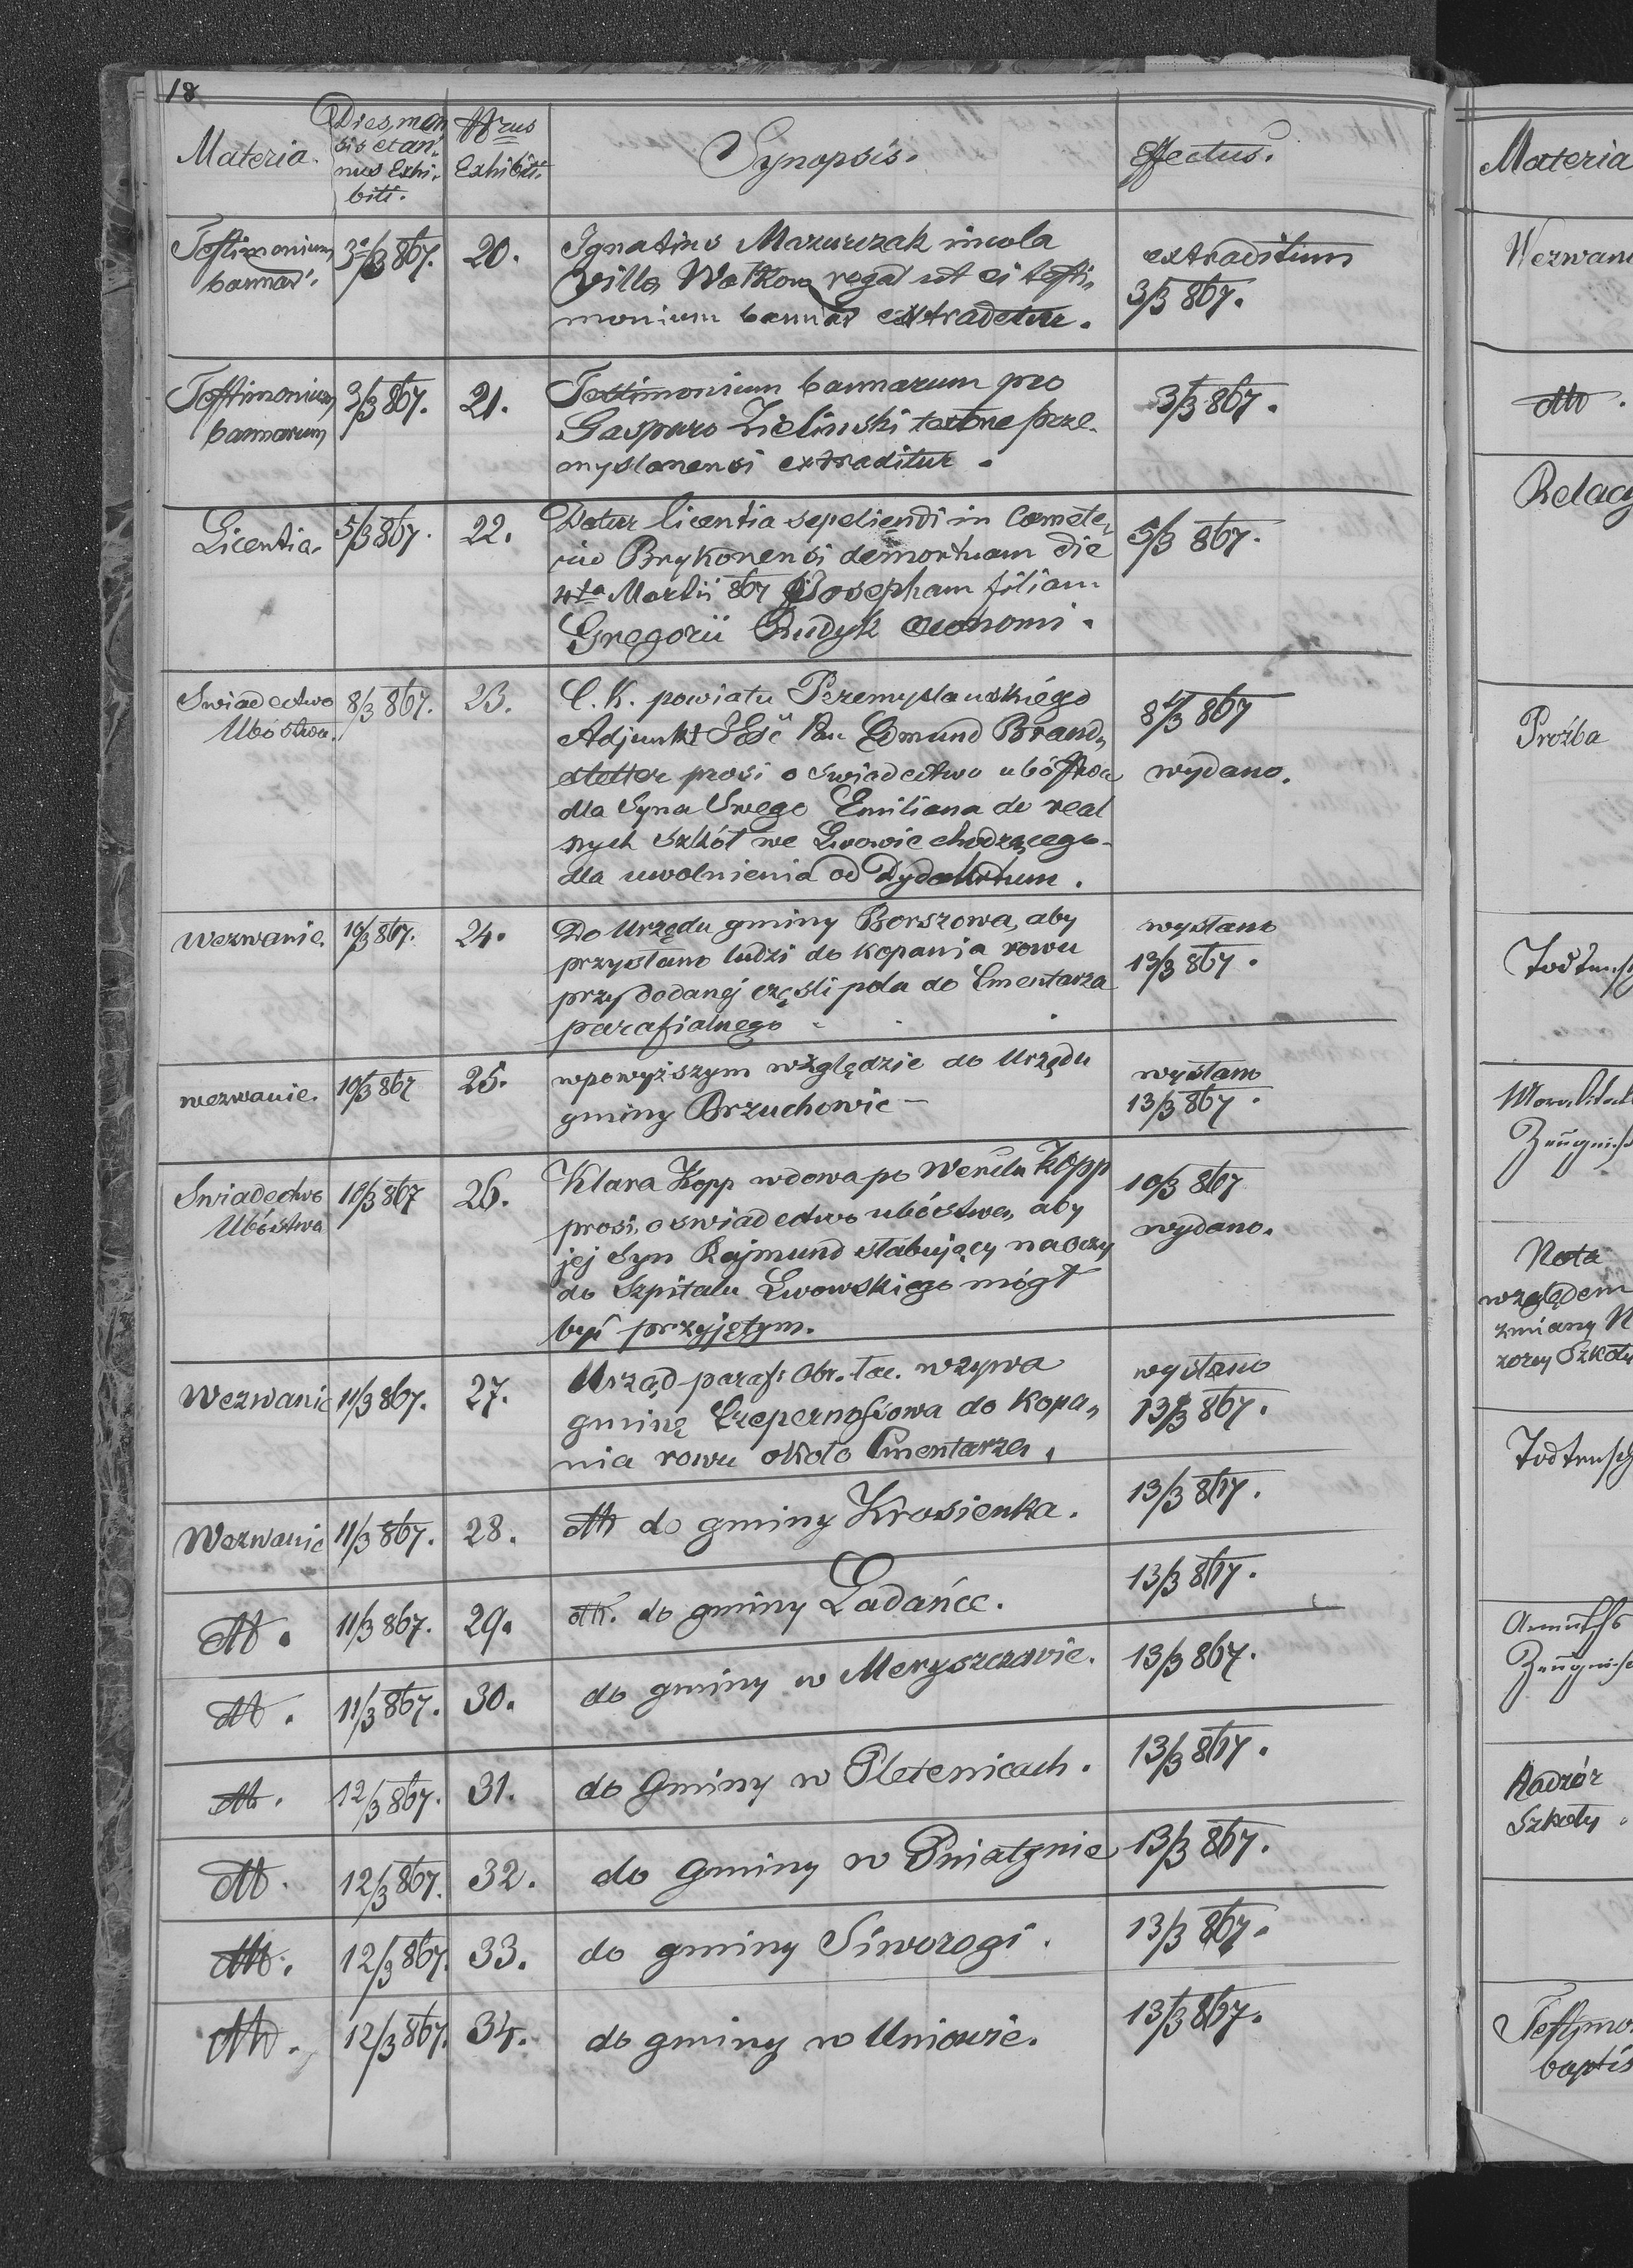 18
Materia.
Dies, men
sis et an,
nus Exhi,
biti.
Nrus
Exhibiti.
Synopsis.
Effectus.
Testimonium
bannar:
3/3 867.
20.
Ignatius Mazurczak incola
villa Wołkow rogat ut ei testi,
monium bannar extradetur.
extraditum
3/3 867.
Testimonium
bannorum
3/3 867.
21.
Testimonium bannarum pro
Gasparo Zielinski prze-
myslanensi extraditur.
3/3 867.
Licentia.
5/3 867.
22.
Datur licentia sepeliendi in Cæmete,
rio Brykonensi demortuam die
Martii 867 Josepham filiam
Gregorii Rudyk œconomi.
5/3 867.
Swiadectwo
Ubóstwa.
8/3 867.
23.
C. K. powiatu Przemyslanskiégo
Adjunkt Edmund Brand,
stetter prosi o swiadectwo ubóstwa
dla Syna Swego Emiliana do real
nych Szkół we Lwowie chodzącego
dla uwolnienia od Dydaktrum.
8/3 867
wydano.
Wezwanie.
10/3 867.
24.
Do Urzędu gminy Borszowa, aby
przysłano ludzi do kopania rowu
przy dodanej części pola do Cmentarza
parafialnego
wysłano
13/3 867.
wezwanie.
10/3 867
25.
wpowyższym względzie do Urzędu
gminy Brzuchowic
wysłano
13/3 867.
Swiadectwo
Ubóstwa
10/3 867
26.
Klara Kopp wdowa po Kopp
prosi o swiadectwo ubóstwa, aby
jej Syn Rajmund słabujący na oczy
do Szpitalu Lwowskiego mógł
być przyjętym.
10/3 867
wydano.
Wezwanie
11/3 867.
27.
Urząd paraf: Obr. łac. wzywa
gminę Czepernosowa do kopa,
nia rowu około Cmentarza.
wysłano
13/3 867.
Wezwanie
11/3 867.
28.
dtto do gminy Krosienka.
13/3 867.
dtto.
11/3 867.
29.
dtto. do gminy Ładańce.
13/3 867.
dtto.
11/3 867.
30.
do gminy w Meryszczowie.
13/3 867.
dtto.
12/3 867.
31.
do Gminy w Pletenicach.
13/3 867.
dtto.
12/3 867.
32.
do Gminy w Pniatynie
13/3 867.
dtto.
12/3 867.
33.
do gminy Siworogi.
13/3 867.
dtto.
12/3 867.
34.
do gminy w Uniowie.
13/3 867.
Materia
Wezwani
dtto.
Relacy
Prośba
Todtensch
Moralitäts
Zeugniß
Nota
względem
zmiany N
zorcy Szkoły
Todtensch
Armuths
Zeugniß
Nadzór
Szkoły
Testymo
baptis